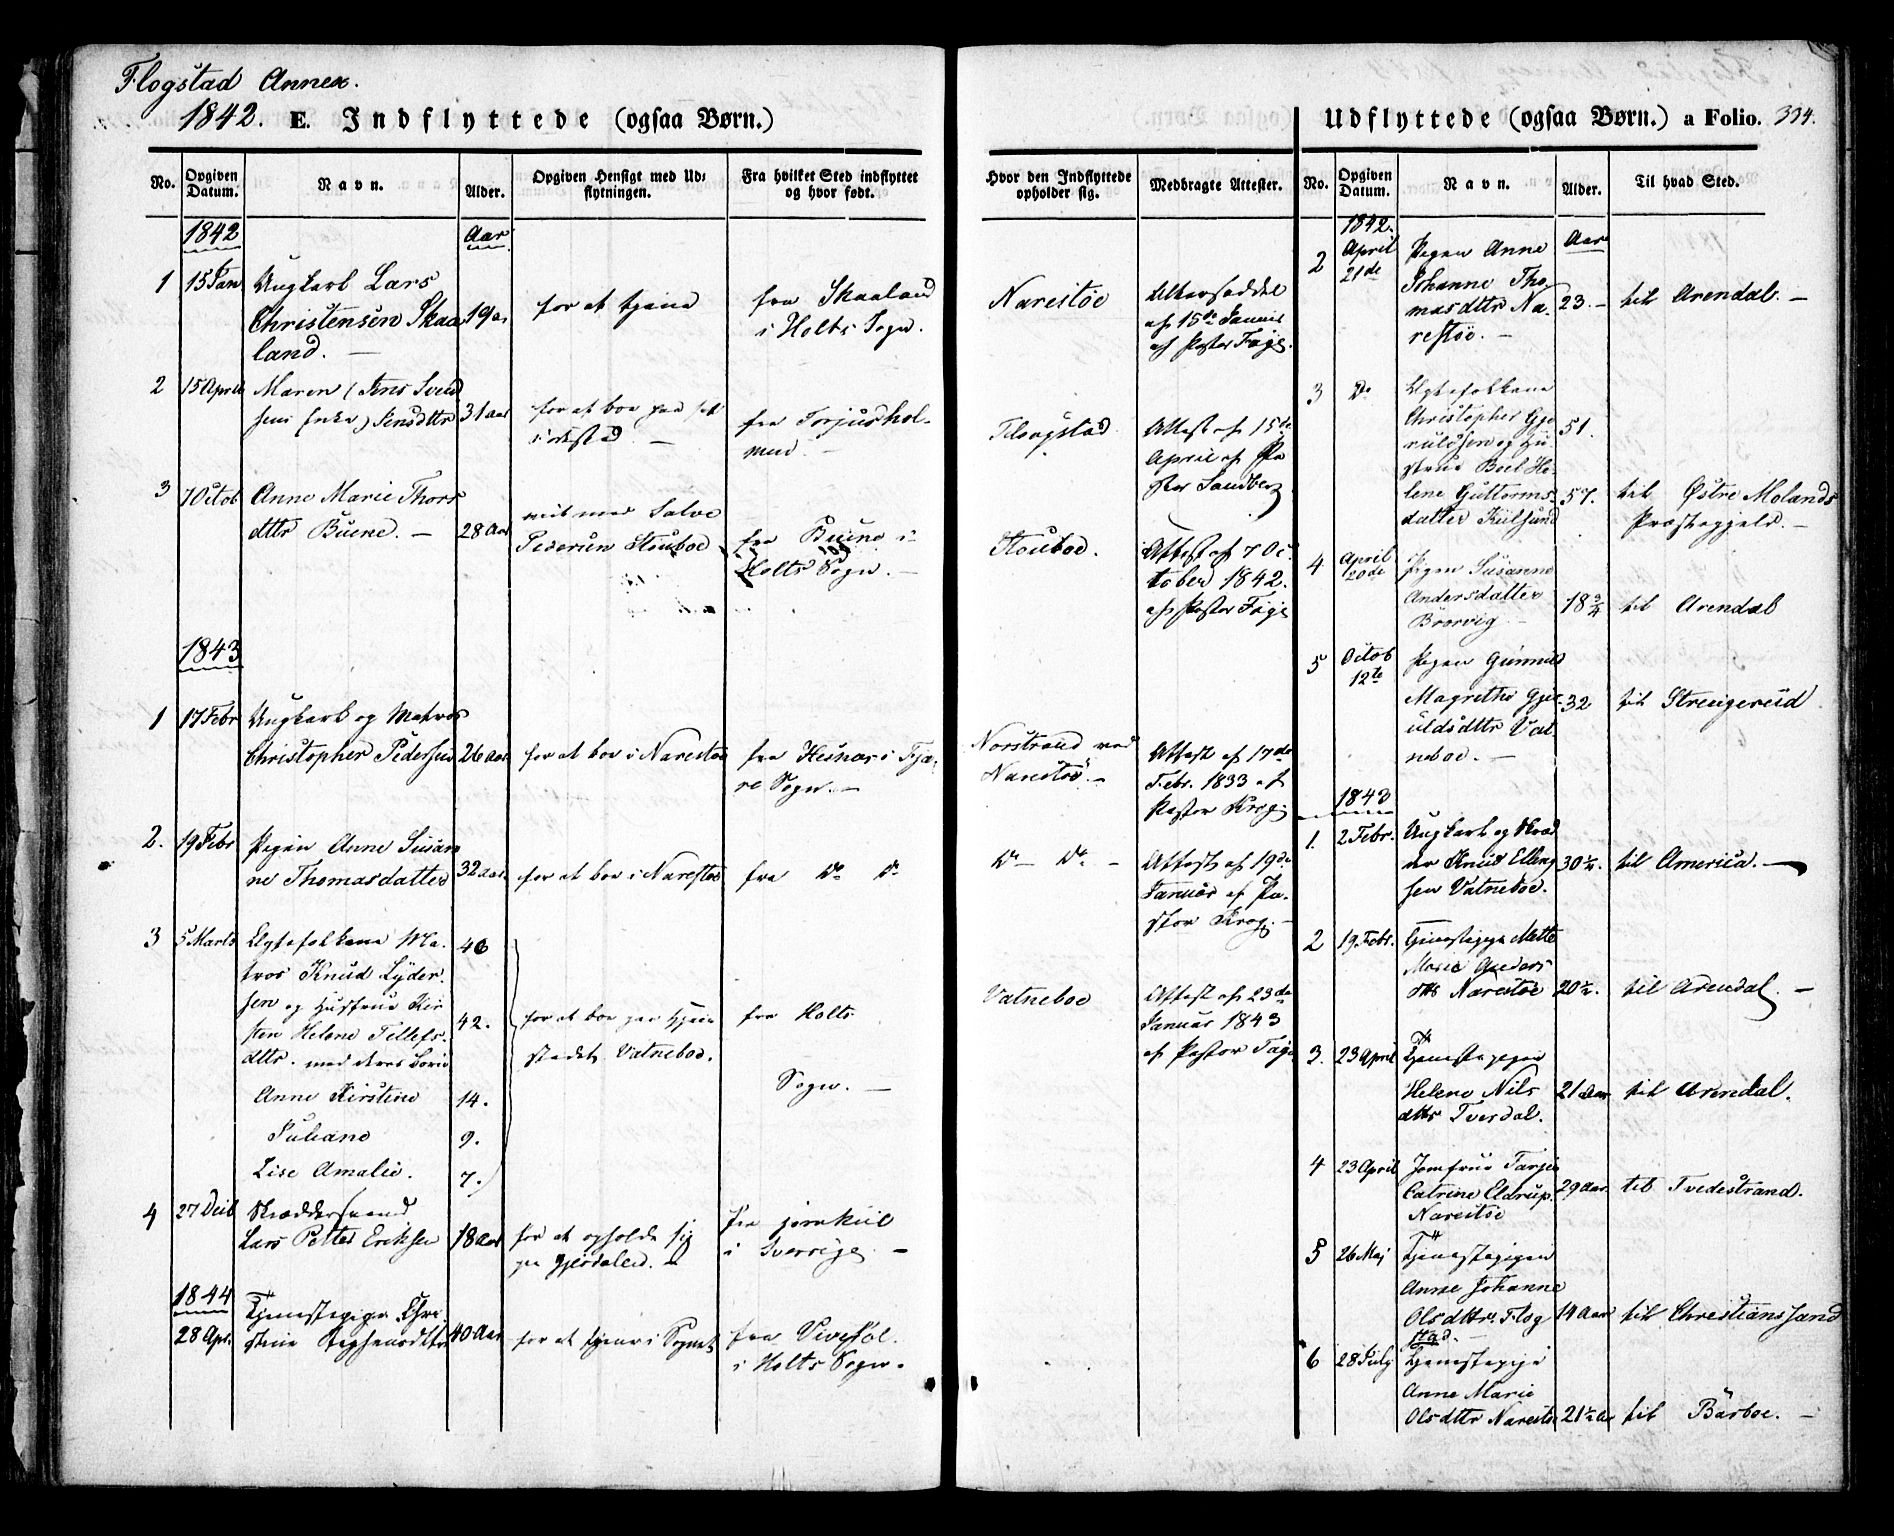 Flogstad Annex.
1842. E. Indflyttede (ogsaa Børn.)
No.
Opgiven Datum.
Navn.
Alder.
Opgiven Hensigt med Udflytningen.
Fra hvilket Sted indflyttet og hvor født.
Hvor den Indflyttede opholder sig.
Medbragte Attester.
1842
Aar
1 15 Jan Ungkarl Lars
Christensen Skaa
land. —
19 aar
for at tjene
fra Skaaland
i Holts Sogn.
Narestöe
af 15de Januar
af Pastor Faÿe.
2 15 April Maren (Jens Svend
sens Enke) Jensdttr
31 aar
for at boe paa
fra Torjusholmen.
Flougstad
Attest af 15de
April af Pa
stor Sandberg
3 7 Octob Anne Marie Thors
dttr Buene. —
28 Aar
Salve
Pedersen Stouboe
fra Buene i
Holts Sogn. —
Stouboe.
Attest af 7 Oc
tober 1842.
af Pastor Faÿe
1843
1 17 Febr Ungkarl og Matros
Christopher Pedersen
26 aar
for at boe i Narestöe
fra Hesnes i Fjæ
re Sogn. —
Norstrand ved
Narestöe. —
Attest af 17de
Febr. 1833 af
Pastor Krog
2. 19 Febr Pigen Anne Susan
ne Thomasdatter
32 aar.
for at boe i Narestöe
fra Do Do
Do — Do —
Attest af 19de
Januar af Pa-
stor Krog. —
3 5 Marts Ægtefolkene Ma-
tros Knud Lyder-
sen og Hustrue Kir
sten Helene Tellefs-
dttr. med deres Börn
40
42.
Anne Kirstine 14.
Juliane 9.
Lise Amalie. 7.
for at boe paa
stedet Vatneboe.
fra Holts
Sogn. —
Vatneboe
Attest af 23de
Januar 1843
af Pastor Faÿe
4 27 Decb Skræddersvend
Lars Petter Eriksen
18 aar
for at opholde sig
paa Gjerdalen. —
fra
i Sverrige. —
1844
28 Apr. Tjenestepige Chri
stine
40 Aar
for at tjene i Sognet
fra
i Holts Sogn.
Udflyttede (ogsaa Børn.) a Folio. 334.
No.
Opgiven Datum.
Navn.
Alder.
Til hvad Sted.
1842.
Aar
2 April
21de
Pigen Anne
Johanne Tho
masdttr Na-
restöe. —
23. — til Arendal. —
3 Do Ægtefolkene
Christopher Gje
ruldsen og Hu-
strue Boel He-
lene Guttorms
datter Kilsund
51.
57. til Østre Molands
Præstegjeld. —
4 April
20de
Pigen Susanne
Andersdatter
Brorvig —
18 3/4 til Arendal
5 Octob
12te
Pigen Gunnild
Magrethe Gje
ruldsdttr Vat
neboe. —
32 til Strengereid
1843
1. 2 Febr. Ungkarl og Skræd
der Knud Elling
sen Vatneboe.
30 1/2. til America. —
2 19 Febr. Tjenestepige Mette
Marie
dttr Narestöe
20 1/2. til Arendal. —
3. 23 April Tjenestepigen
Helene Nils
dttr Tverdal.
21 aar til Arendal.
4 23 April Jomfrue
Catrine Eldrup.
Narestöe
29 aar. til Tvedestrand.
5 26 Maj Tjenestepigen
Anne Johanne
Olsdttr. Flog
stad. —
14 Aar til Christianssand
6 28 July Tjenestepige
Anne Marie
Olsdttr Narestöe
21 1/2 a til Barboe. —